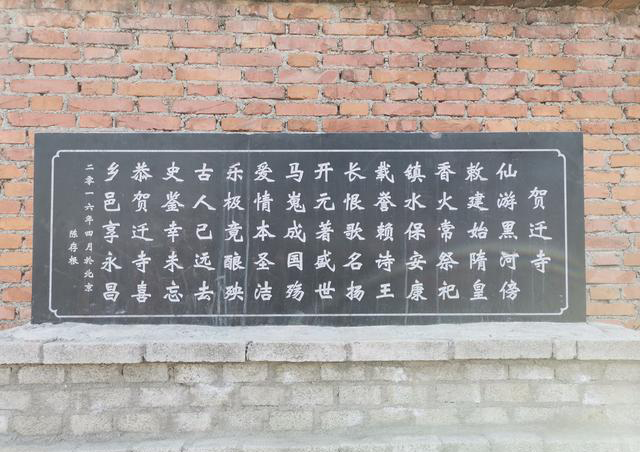 贺迁寺
仙游黑河傍
敕建始隋皇
香火常祭祀
镇水保安康
载誉赖诗王
长恨歌名扬
开元著盛世
马嵬成国殇
爱情本圣洁
乐极竟酿殃
古人已远去
史鉴幸未忘
恭贺迁寺喜
乡邑享永昌
二零一六年四月於北京
陈存根